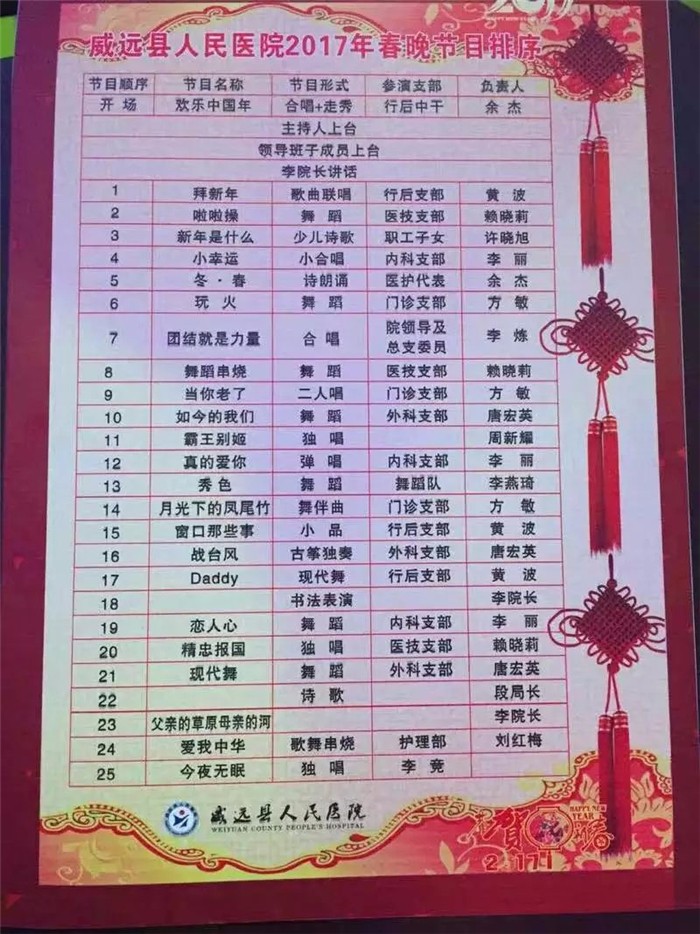 威远县人民医院2017年春晚节目排序
节目顺序 节目名称 节目形式 参演支部 负责人
开场 欢乐中国年 合唱+走秀 行后中干 余杰
主持人上台
领导班子成员上台
李院长讲话
1 拜新年 歌曲联唱 行后支部 黄波
2 啦啦操 舞蹈 医技支部 赖晓莉
3 新年是什么 少儿诗歌 职工子女 许晓旭
4 小幸运 小合唱 内科支部 李丽
5 冬·春 诗朗诵 医护代表 余杰
6 玩火 舞蹈 门诊支部 方敏
7 团结就是力量 合唱 院领导及总支委员 李炼
8 舞蹈串烧 舞蹈 医技支部 赖晓莉
9 当你老了 二人唱 门诊支部 方敏
10 如今的我们 舞蹈 外科支部 唐宏英
11 霸王别姬 独唱 周新耀
12 真的爱你 弹唱 内科支部 李丽
13 秀色 舞蹈 舞蹈队 李燕琦
14 月光下的凤尾竹 舞伴曲 门诊支部 方敏
15 窗口那些事 小品 行后支部 黄波
16 战台风 古筝独奏 外科支部 唐宏英
17 Daddy 现代舞 行后支部 黄波
18 书法表演 李院长
19 恋人心 舞蹈 内科支部 李丽
20 精忠报国 独唱 医技支部 赖晓莉
21 现代舞 舞蹈 外科支部 唐宏英
22 诗歌 段局长
23 父亲的草原母亲的河 李院长
24 爱我中华 歌舞串烧 护理部 刘红梅
25 今夜无眠 独唱 李竞
威远县人民医院
WEIYUAN COUNTY PEOPLE'S HOSPITAL
HAPPY NEW YEAR
賀 春